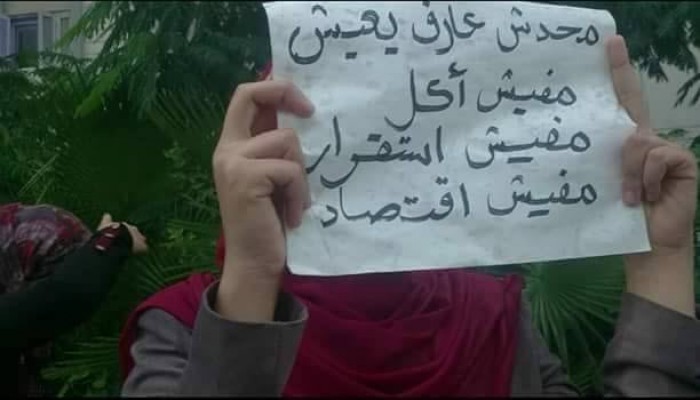 محدش عارف يعيش
مفيش أكل
مفيش استقرار
مفيش اقتصاد